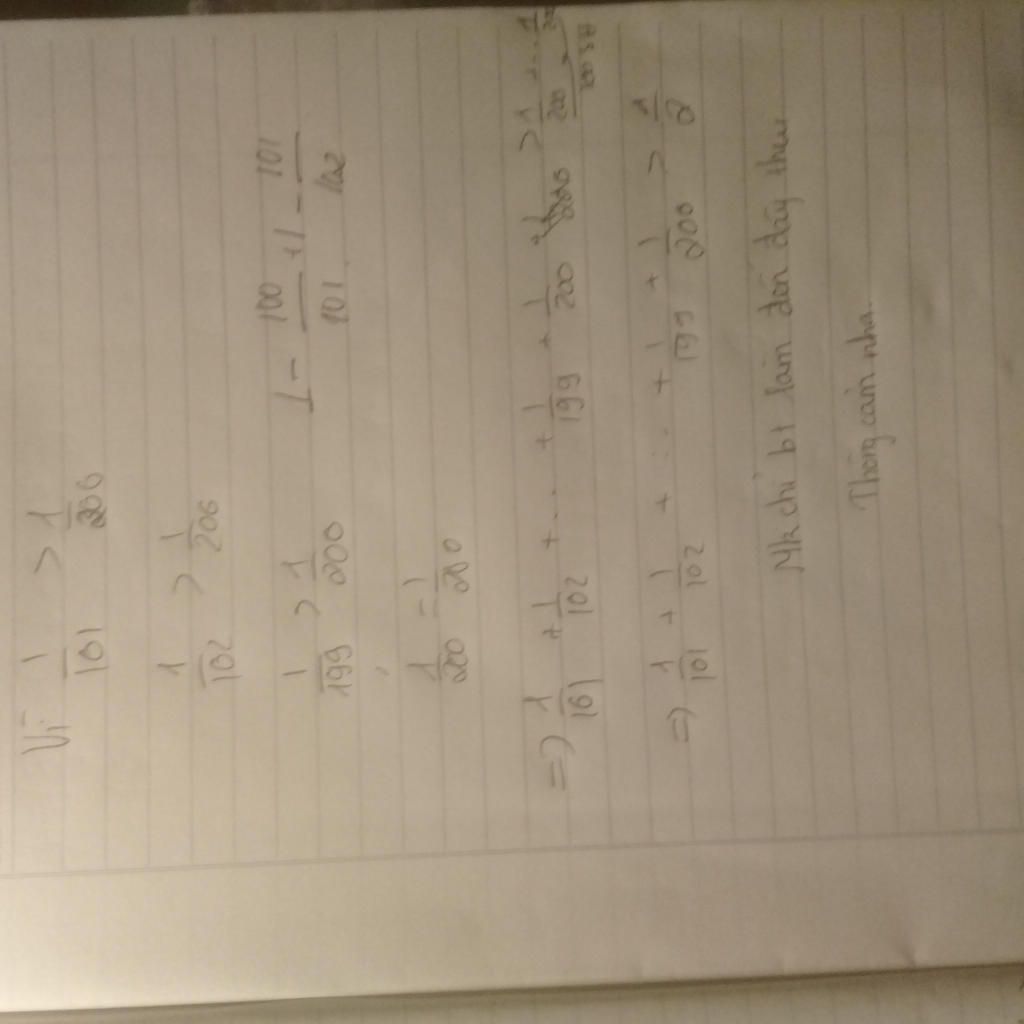 Vì 1/101 > 1/200
1/102 > 1/200
1/199 > 1/200 1 - 100/101 + 1 - 101/102
1/200 = 1/200
=> 1/101 + 1/102 + ... + 1/199 + 1/200 > 1/200 + ... 1/200
100 SH
=> 1/101 + 1/102 + ... + 1/199 + 1/200 > 1/2
Mk chỉ bt làm đến đây thui
Thông cảm nha.